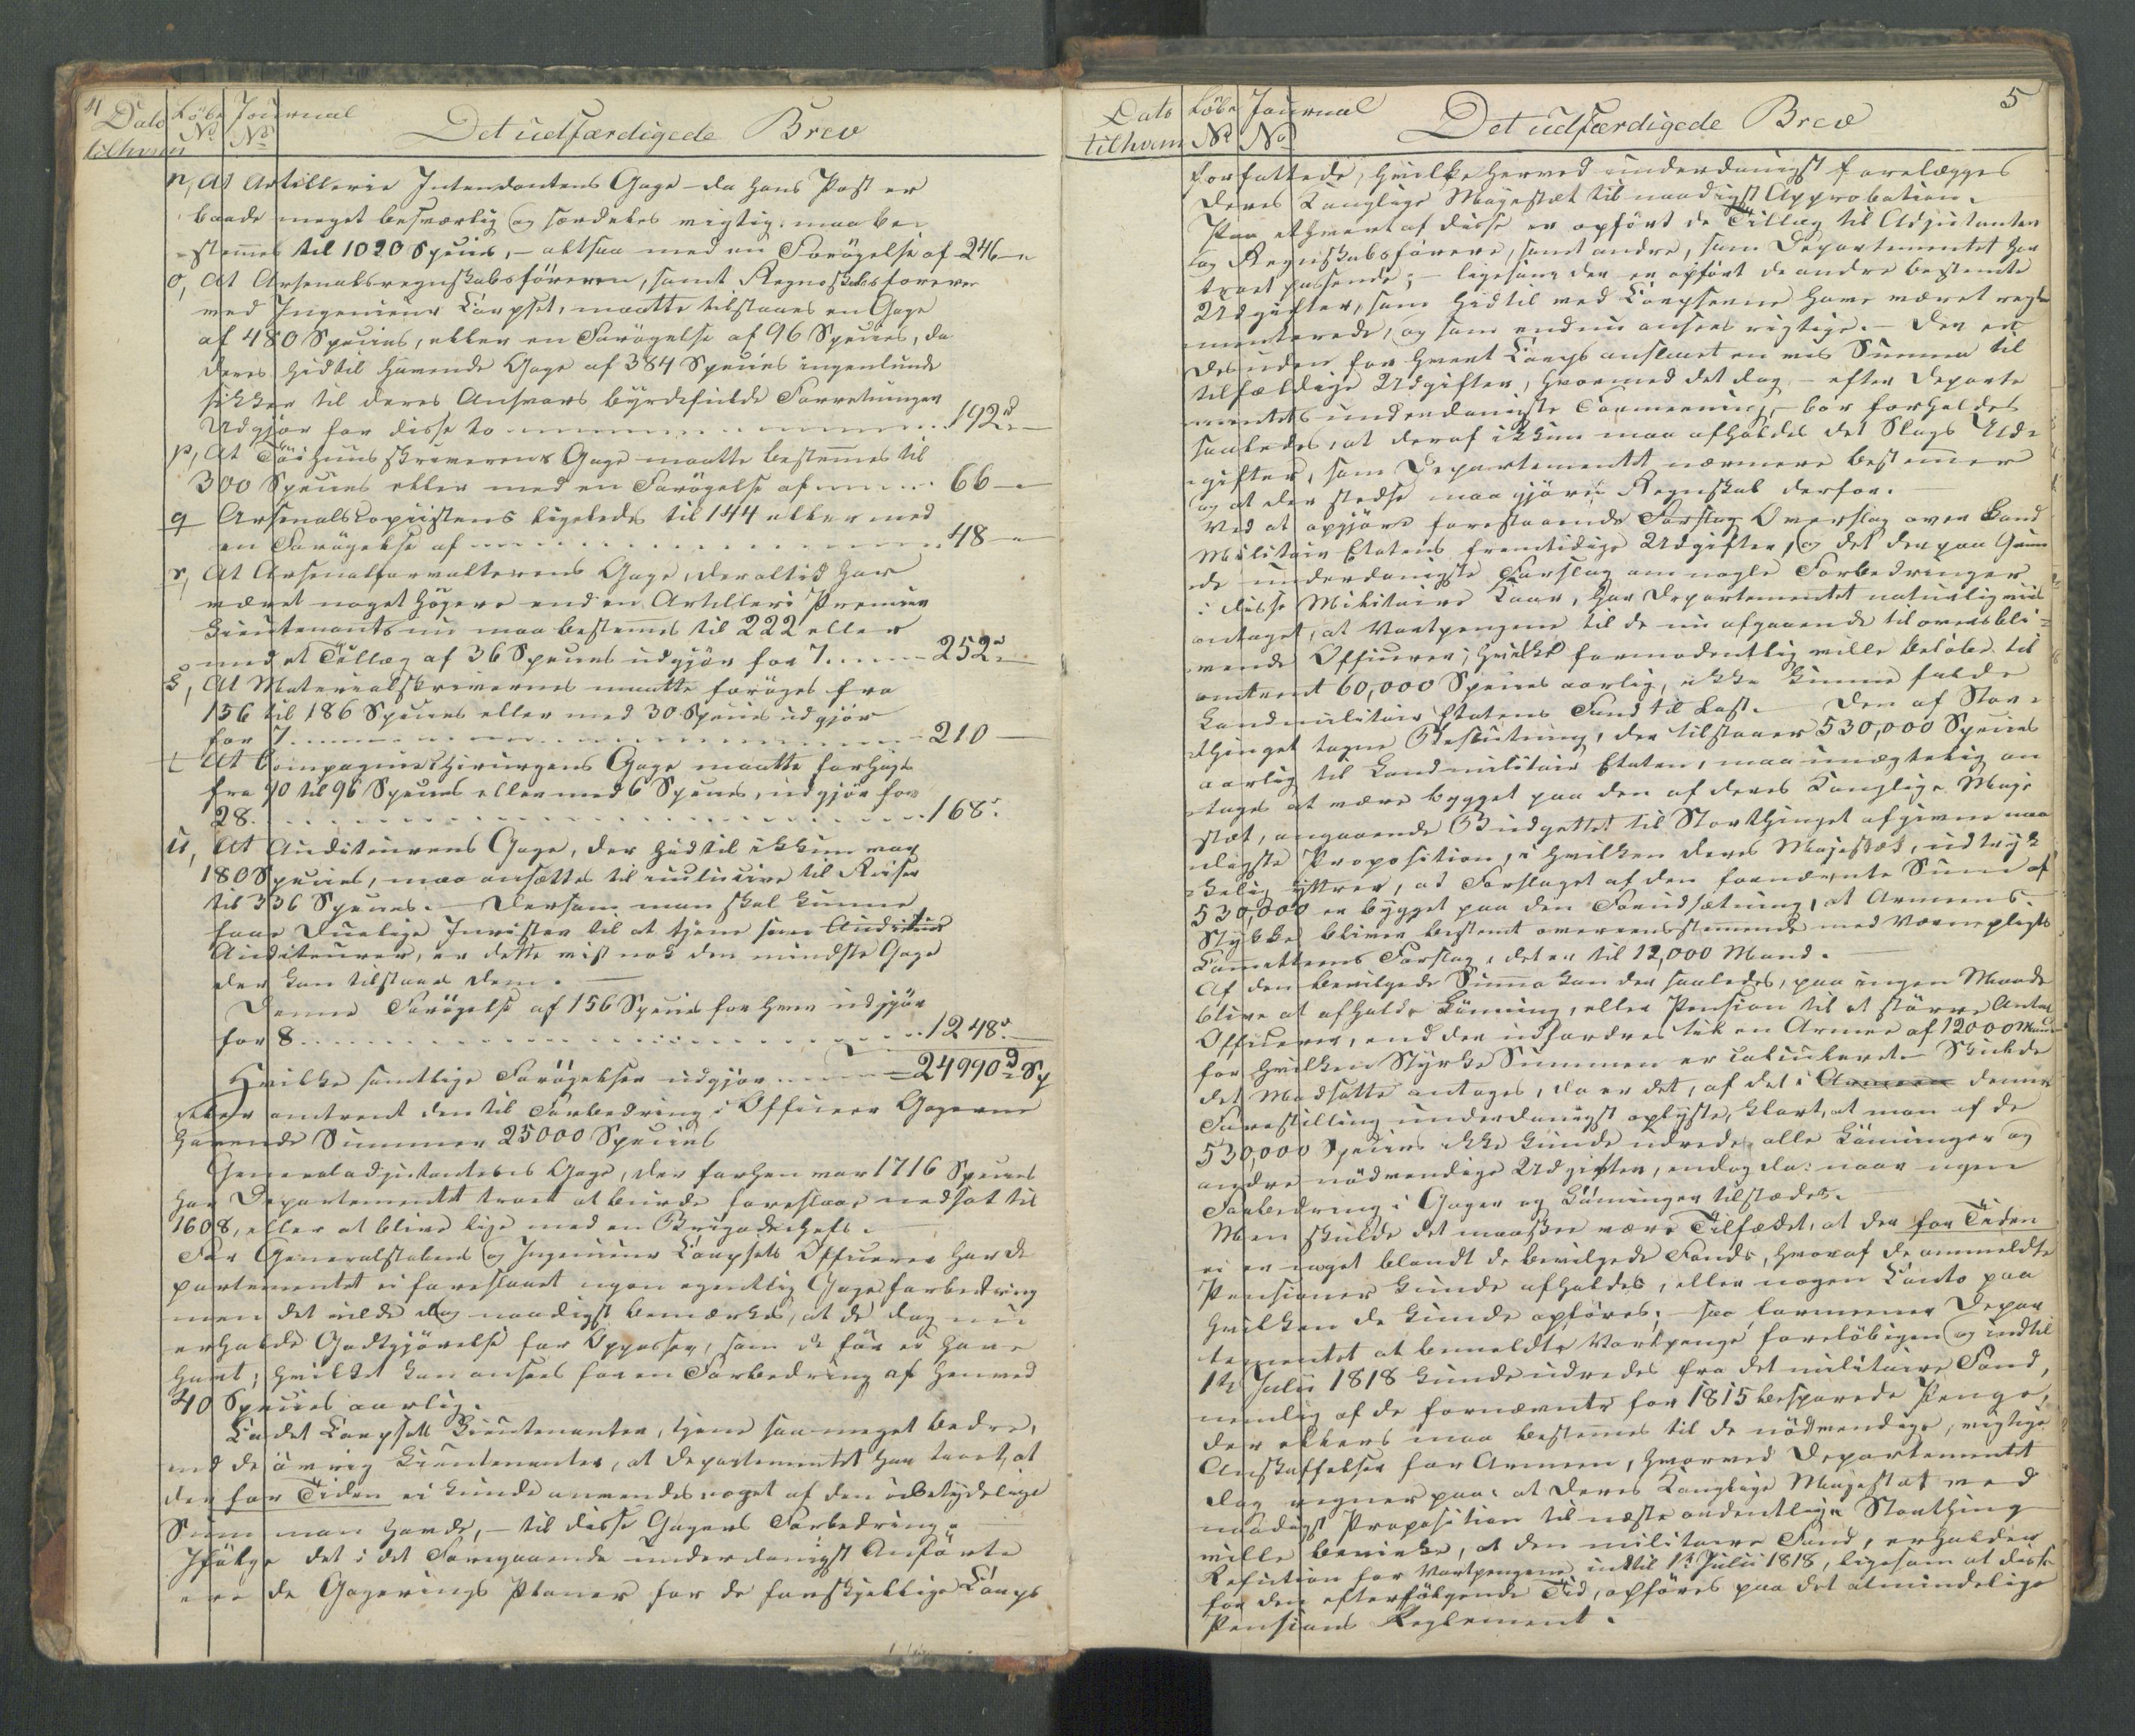 4
Dato Løbe Journal
No No
tilhvem
Det udfærdigede Brev
n, At Artillerie Intendantens Gage – da hans Post er
baade meget besværlig og særdeles vigtig, maa be-
stemes til 1020 Species, – altsaa med en Forögelse af 246 –
o, At Arsenalsregnskabsföreren, samt Regnskabsförerer
ved Ingenieur Corpset, maatte tilstaaes en Gage
af 480 Species, eller en Forögelse af 96 Species, da
deres hidtil havende Gage af 384 Species ingenlunde
sikkrer til deres Ansvars byrdefulde Forretninger
Udgjör for disse to 192 –
p, At Töihuusskriverens Gage maatte bestemes til
300 Species eller med en Forögelse af 66 –
q Arsenalscopiistens ligeledes til 144 eller med
en Forögelse af 48 –
r, At Arsenalforvalterens Gage, der altid har
været noget höyere end en Artilleri Premier
Lieutenants nu maa bestemes til 222 eller
med et Tillæg af 36 Species udgjör for 7 252 –
s, At Materialskrivernes maatte foröges fra
156 til 186 Species eller med 30 Species udgjör
for 7 210 –
t At Compagniechirurgens Gage maatte forhöyes
fra 90 til 96 Species eller med 6 Species, udgjör for
28. 168.
u, At Auditeurens Gage, der hidtil ikkun var
180 Species, maa ansættes til inclusive til Reiser
til 336 Species. – Dersom man skal kunne
faae duelige Jurister til at tjene som Auditeur
Auditeurer, er dette vist nok den mindste Gage
der kan tilstaaes dem. –
Denne Forögelse af 156 Species for hver udgjör
for 8 1248 –
Hvilke samtlige Forögelser udgjör = 24990 Sp
eller omtrent den til Forbedring i Officeer Gagerne
havende Summer 25000 Species
Generaladjutantens Gage, der forhen var 1716 Species
har Departementet troet at burde foreslaae nedsat til
1608, eller at blive lige med en Brigadechefs.
For Generalstabens og Ingenieur Corpsets Officerer har De
partementet ei foreslaaet nogen egentlig Gageforbedring
men det vilde dog naadigst bemærkes, at de dog nu
erholde Godtgjörelse for Oppasser, som de för ei have
havt; hvilket kan ansees for en Forbedring af henved
40 Species aarlig.
Cadet Corpsets Lieutenanter, tjene saa meget bedre,
end de övrig Lieutenanter, at Departementet har troet, at
der for Tiden ei kunde anvendes noget af den ubetydelige
Sum man havde, – til disse Gagers Forbedring.
Ifölge det i det Foregaaende underdanigst Anförte
ere de Gagerings Planer for de forskjellige Corps
5
Dato Løbe Journal
tilhvem No No
Det udfærdigede Brev
forfattede, hvilke herved underdanigst forelægges
Deres Kongelige Majestæt til naadigst Approbation.
Paa ethvert af disse er opfört de Tillæg til Adjutanter
og Regnskabsförere, samt andre, som Departementet har
troet passende; – ligesom der er opfört de andre bestemte
Udgifter, som hidtil ved Corpserne have været regle
menterede, og som endnu ansees rigtige. – Der er
desuden for hvert Corps anslaaet en vis Summa til
tilfældige Udgifter, hvormed det dog – efter Departe
mentets underdanigste Formeening – bör forholdes
saaledes, at deraf ikkun maa afholdes det Slags Ud-
gifter, som Departementet nærmere bestemer
og at der stedse maa gjöres Regnskab derfor.
Ved at opgjöre forestaaende Forslag Overslag over Land
Militair Etatens fremtidige Udgifter, og det derpaa grun
ede underdanigste Forslag om nogle Forbedringer
i disse Militaires Kaar, har Departementet naturligviis
antaget, at Vartpengene til de nu afgaaende tiloversbli-
vende Officerer, hvilke formodentlig ville belöbe til
omtrent 60,000 Species aarlig, ikke kunne falde
Landmilitair Etatens Fond til Last. Den af Stor-
thinget tagne Beslutning, der tilstaaer 530,000 Species
aarlig til Landmilitair Etaten, maa unægtelig an
tages at være bygget paa den af Deres Kongelige Maje
stæt, angaaende Budgettet til Storthinget afgivne naa
digste Proposition, i hvilken Deres Majestæt, udtryk
kelig yttrer, at Forslaget af den fornævnte Sum af
530,000 er bygget paa den Forudsætning, at Armeens
Stykke bliver bestemt overeensstemende med Værnepligts
Comitteens Forslag, det er til 12,000 Mand. –
Af den bevilgede Summa kan der saaledes, paa ingen Maade
blive at afholde Lönning, eller Pension til et större Antal
Officerer, end der udfordres til en Armee af 12000 Mand
for hvilken Styrke Summen er calculeret – Skulde
det Modsatte antages, da er det, af det i Armeen denne
Forestilling underdanigst oplyste, klart, at man af de
530,000 Species ikke kunde udrede alle Lönninger og
andre nödvendige Udgifter, endog da: naar ingen
Forbedring i Gager og Lönninger tilstædes.
Men skulde det maaskee være Tilfældet, at der for Tiden
ei er noget blandt de bevilgede Fonds, hvoraf de ommeldte
Pensioner kunde afholdes, eller nogen Conto paa
hvilken de kunde opföres, – saa formener Depar
tementet at bemeldte Vartpenge forelöbigen og indtil
1te Julii 1818 kunde udredes fra det militaire Fond,
nemlig af de fornævnte for 1815 besparede Penge,
der ellers maa bestemes til de nödvendige, vigtige
Anskaffelser for Armeen, hvorved Departementet
dog regner paa: at Deres Kongelige Majestæt ved
naadigst Proposition til næste ordentlige Storthing
ville bevirke, at den militaire Fond, erholder
Refution for Vartpengene indtil 1te Julii 1818, ligesom at disse
for den efterfölgende Tid, opföres paa det almindelige
Pensions Reglement.